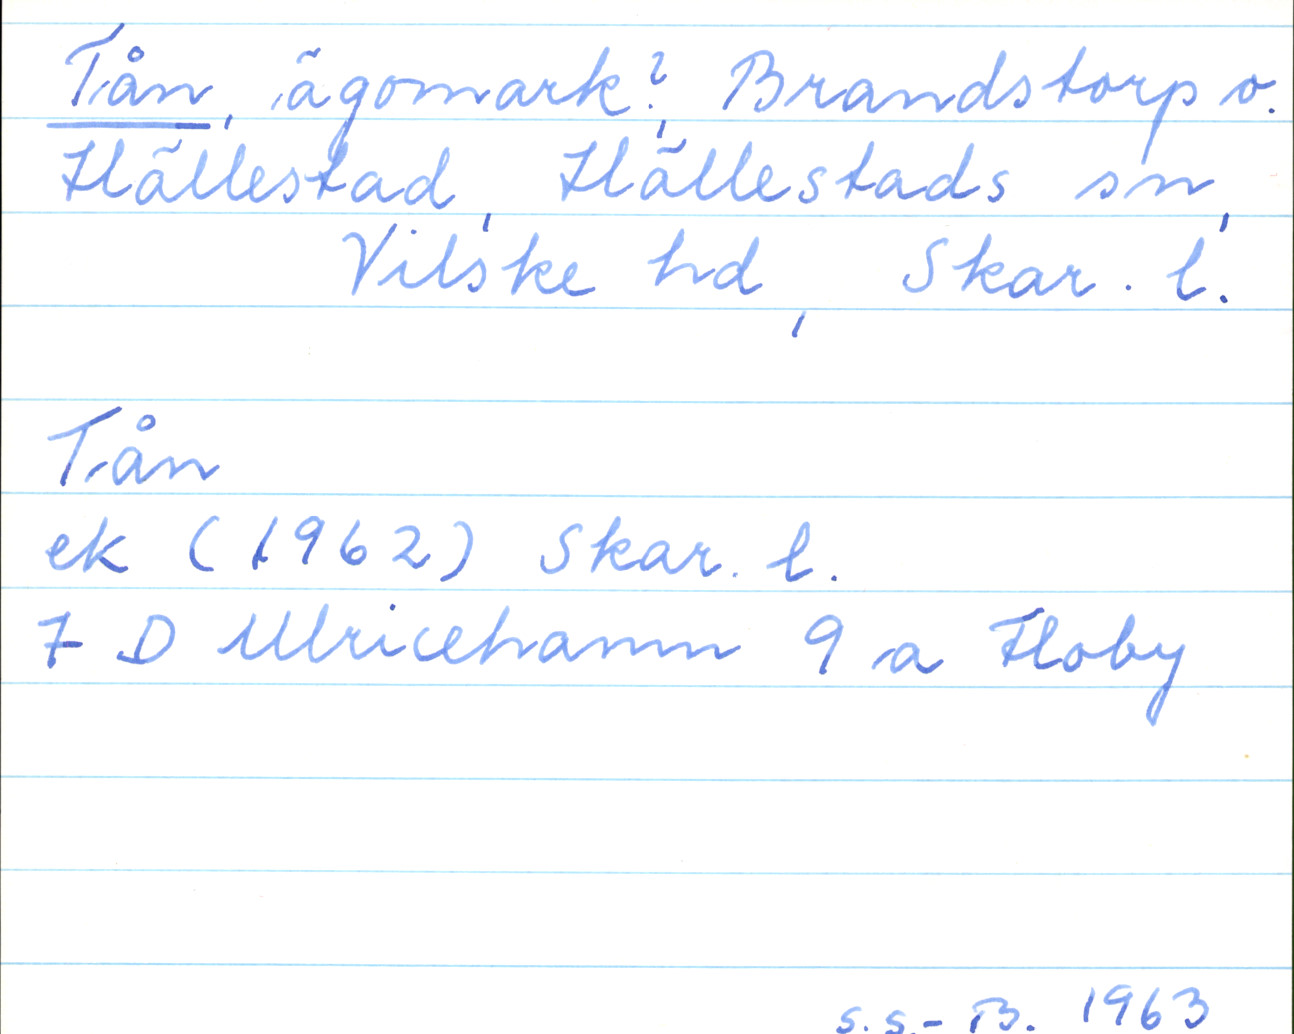 Tån, ägomark?, Brandstorp o.
Hällestad, Hällestads sn,
Vilske hd, Skar. l.
Tån
ek (1962) Skar. l.
7 D Ulricehamn 9 a Floby
S.S.-B. 1963